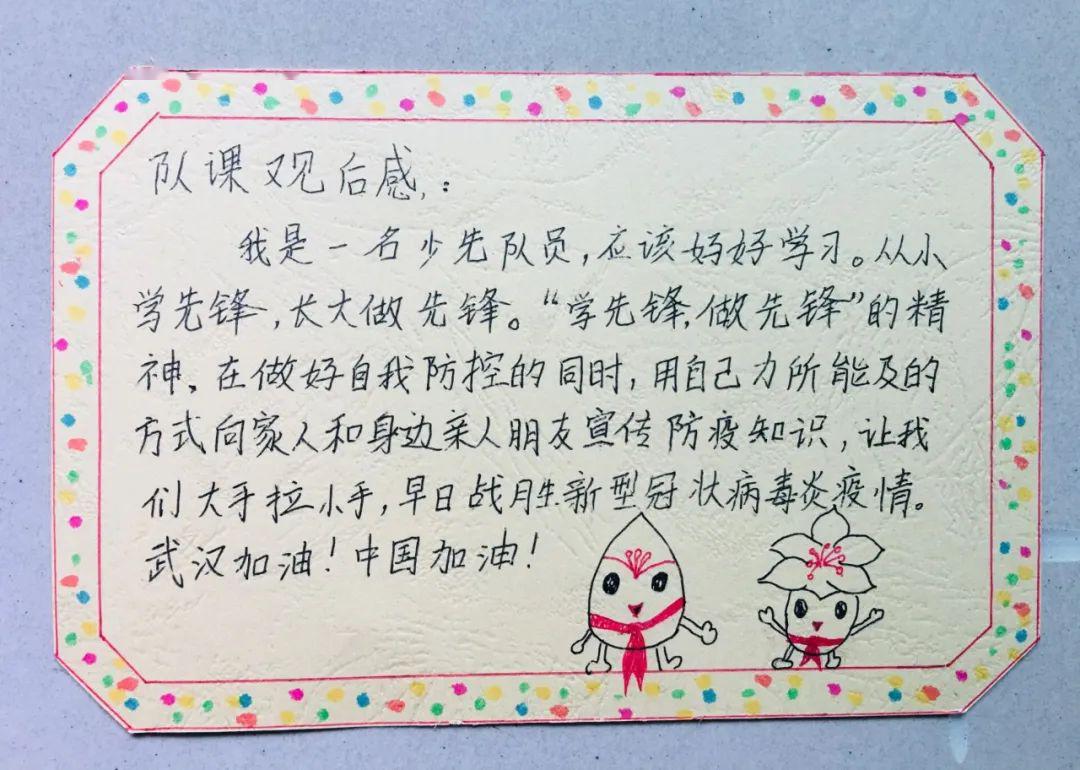 队课观后感：
我是一名少先队员，应该好好学习。从小
学先锋，长大做先锋。“学先锋，做先锋”的精
神。在做好自我防控的同时，用自己力所能及的
方式向家人和身边亲人朋友宣传防疫知识，让我
们大手拉小手，早日战胜新型冠状病毒炎疫情。
武汉加油！中国加油！